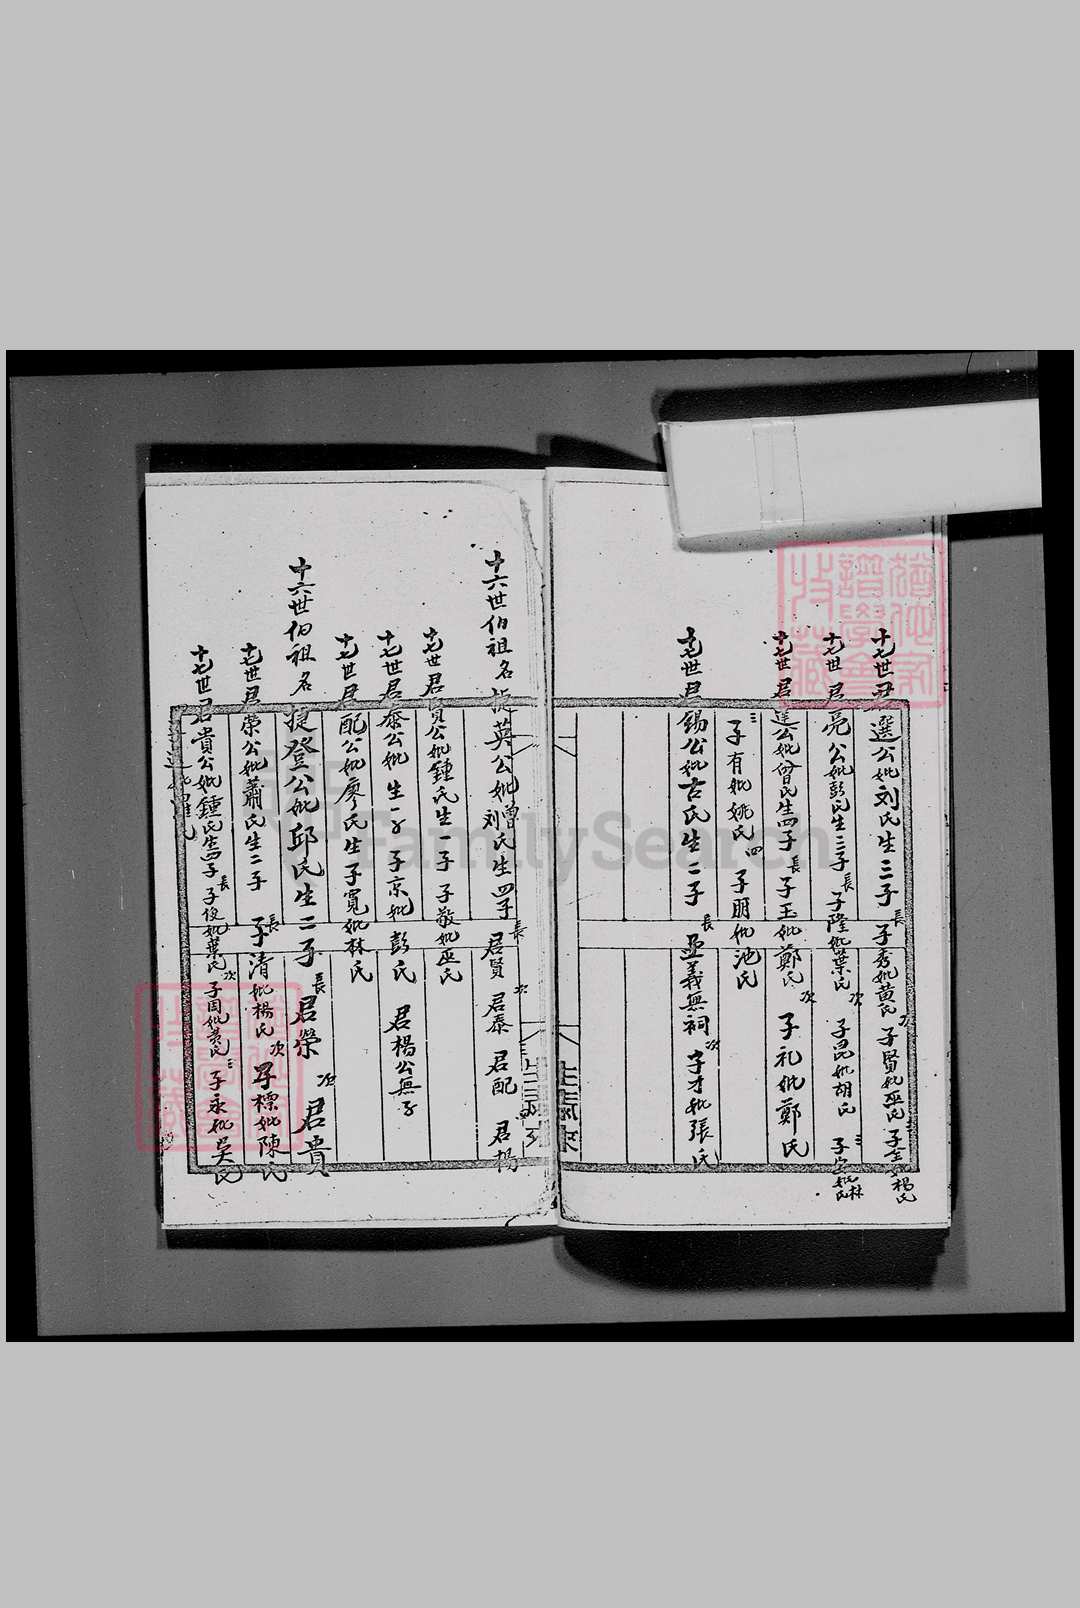 十七世君選公妣刘氏生三子 長 子秀妣黄氏 次 子賢妣巫氏 三 子 妣楊氏
十七世君亮公妣彭氏生三子 長 子隆妣葉氏 次 子昆妣胡氏 三 子 妣林氏
十七世君達公妣曾氏生四子 長 子玉妣鄭氏 次 子礼妣鄭氏
三 子有妣姚氏 四 子明妣池氏
十七世君錫公妣古氏生二子 長 孟義無祠 次 子才妣張氏
十六世伯祖名捷英公妣曾刘氏生四子 長 君賢 次 君泰 君配 君楊
十七世君賢公妣鍾氏生一子 子敬妣巫氏
十七世君泰公妣 生一子 子京妣彭氏 君楊公無子
十七世君配公妣廖氏生子寬妣林氏
十六世伯祖名捷登公妣邱氏生二子 長 君榮 次 君貴
十七世君榮公妣蕭氏生二子 長 子清妣楊氏 次 子標妣陳氏
十七世君貴公妣鍾氏生四子 長 子俊妣葉氏 次 子因妣黄氏 三 子永妣吴氏
FamilySearch